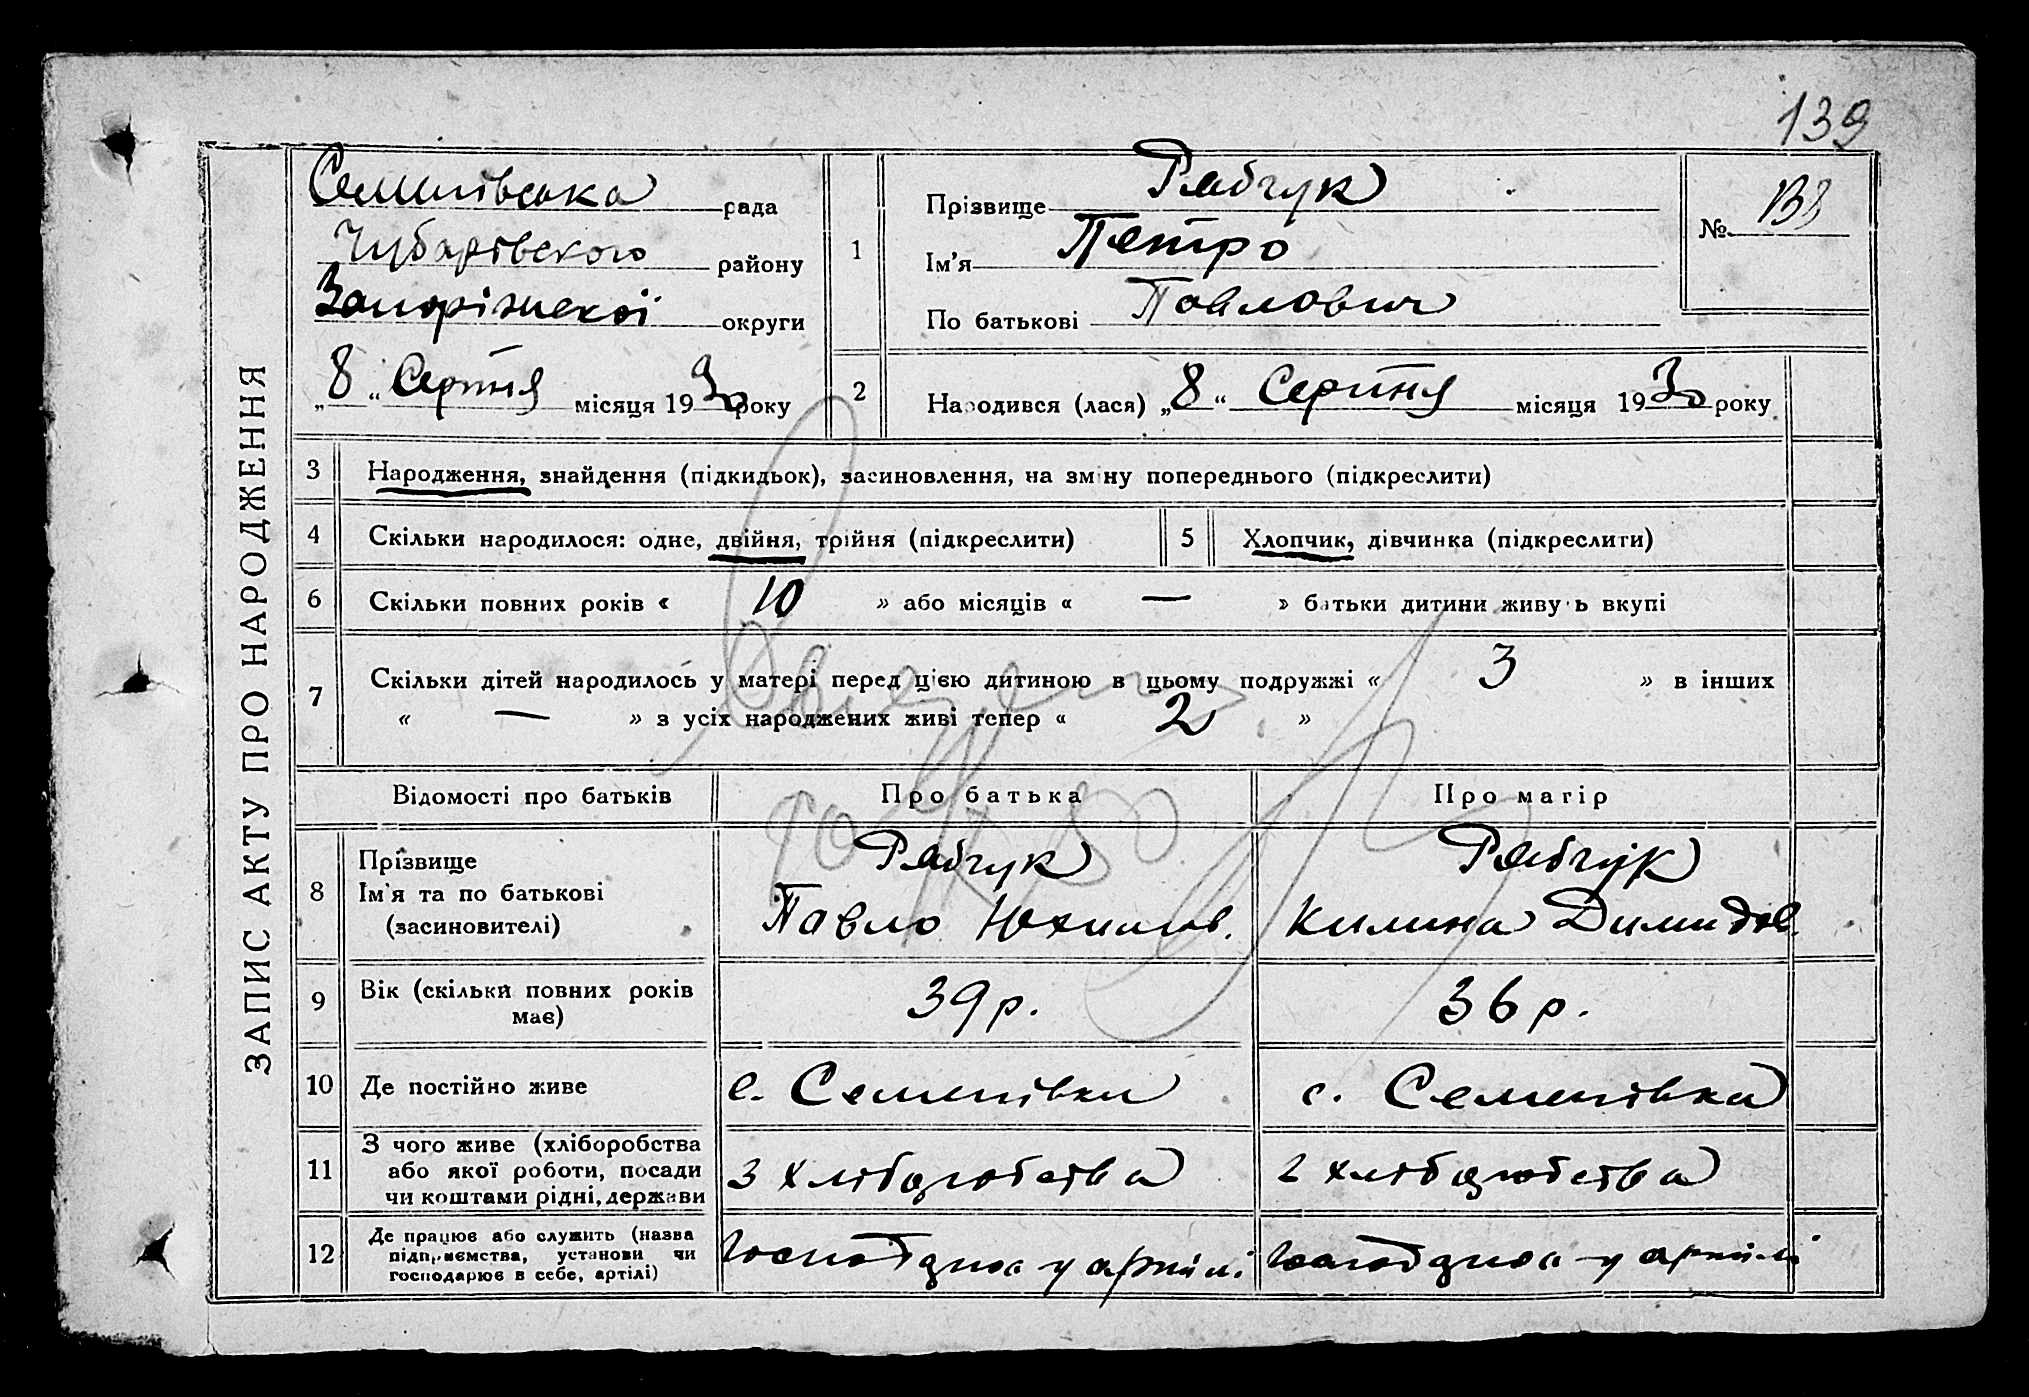 139
ЗАПИС АКТУ ПРО НАРОДЖЕННЯ
Семенівська рада
Чубарівського району
Запоріжської округи
„8“ Серпня місяця 1930 року
1
Прізвище Рябчук
Ім'я Петро
По батькові Павлович
№ 138
2
Народився (лася) „8“ Серпня місяця 1930 року
3 Народження, знайдення (підкидьок), засиновлення, на зміну попереднього (підкреслити)
4 Скільки народилося: одне, двійня, трійня (підкреслити)
5 Хлопчик, дівчинка (підкреслити)
6 Скільки повних років « 10 » або місяців « — » батьки дитини живуть вкупі
7 Скільки дітей народилось у матері перед цією дитиною в цьому подружжі « 3 » в інших
« — » з усіх народжених живі тепер « 2 »
Відомості про батьків Про батька Про матір
8 Прізвище
Ім'я та по батькові
(засиновителі)
Рябчук
Павло Юхимов.
Рябчук
Килина Димидов.
9 Вік (скільки повних років
має)
39 р. 36 р.
10 Де постійно живе с. Семенівки с. Семенівка
11 З чого живе (хліборобства
або якої роботи, посади
чи коштами рідні, держави
з хліборобства з хліборобства
12 Де працює або служить (назва
підприємства, установи чи
господарює в себе, артілі)
у артілі у артілі